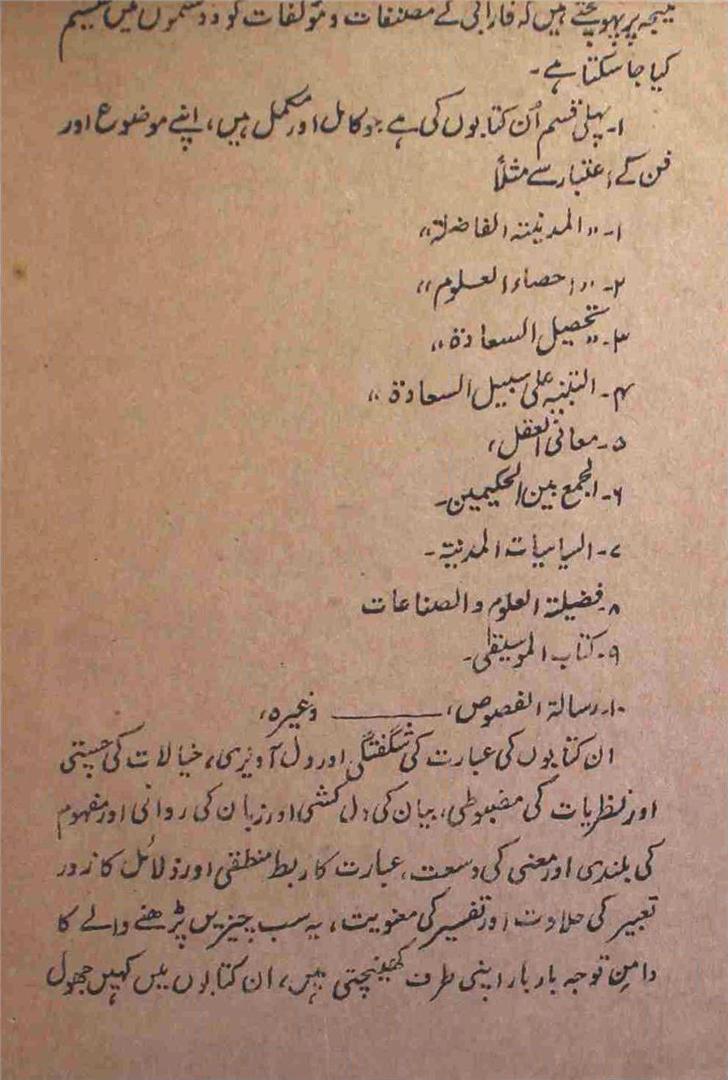 نتیجہ پر پہونچتے ہیں کہ فارابی کے مصنفات و مؤلفات کو دو قسموں میں تقسیم
کیا جا سکتا ہے۔
۱۔ پہلی قسم اُن کتابوں کی ہے جو کامل اور مکمل ہیں، اپنے موضوع اور
فن کے اعتبار سے مثلاً
۱۔ "المدینۃ الفاضلۃ"
۲۔ "احصاء العلوم"
۳۔ "تحصیل السعادۃ"
۴۔ التنبیہ علی سبیل السعادۃ"
۵۔ معانی العقل،
۶۔ الجمع بین الحکیمین۔
۷۔ السیاسیات المدنیۃ۔
۸۔ فضیلۃ العلوم والصناعات
۹۔ کتاب الموسیقی۔
۱۰۔ رسالۃ الفصوص، ــــــــــ وغیرہ،
ان کتابوں کی عبارت کی شگفتگی اور دل آویزی، خیالات کی چستی
اور نظریات کی مضبوطی، بیان کی دل کشی اور زبان کی روانی اور مفہوم
کی بلندی اور معنی کی وسعت، عبارت کا ربط منطقی اور دلائل کا زور
تعبیر کی حلاوت اور تفسیر کی معنویت، یہ سب چیزیں پڑھنے والے کا
دامن توجہ بار بار اپنی طرف کھینچتی ہیں، ان کتابوں میں کہیں جھول